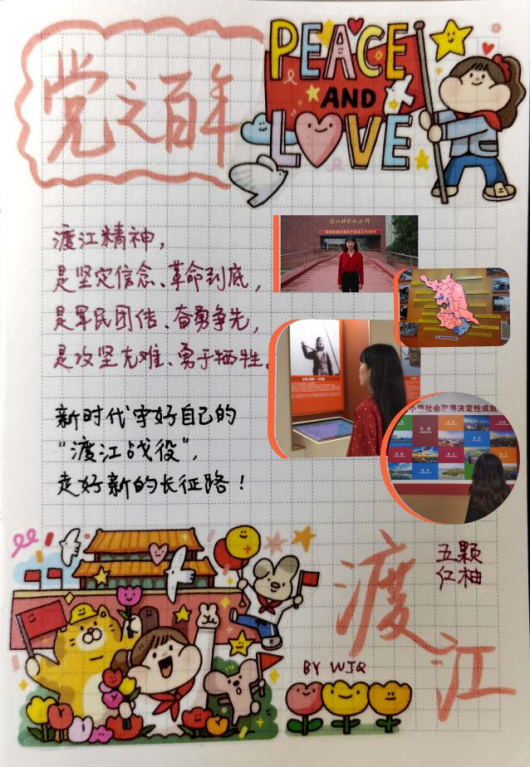 党之百年
PEACE
AND
LOVE
渡江精神，
是坚定信念、革命到底，
是军民团结、奋勇争先，
是攻坚克难、勇于牺牲。
新时代守好自己的
“渡江战役”，
走好新的长征路！
五颗
红柚
渡江
BY WJQ